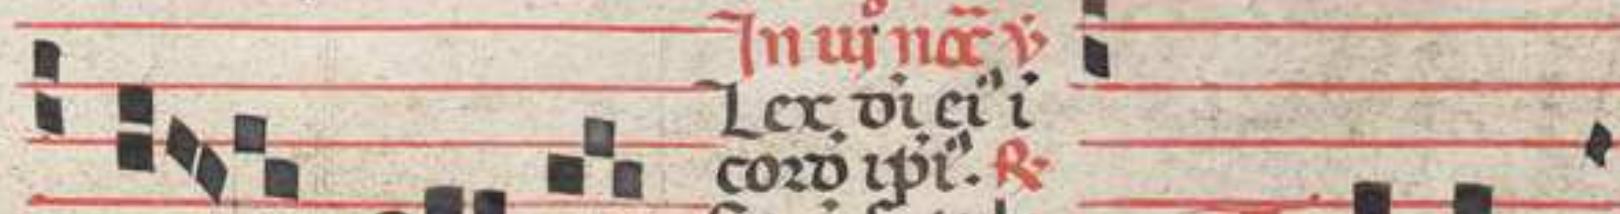 In iij noct͞ v̄
Lex di ei'' i
cord ip̄i''. R.